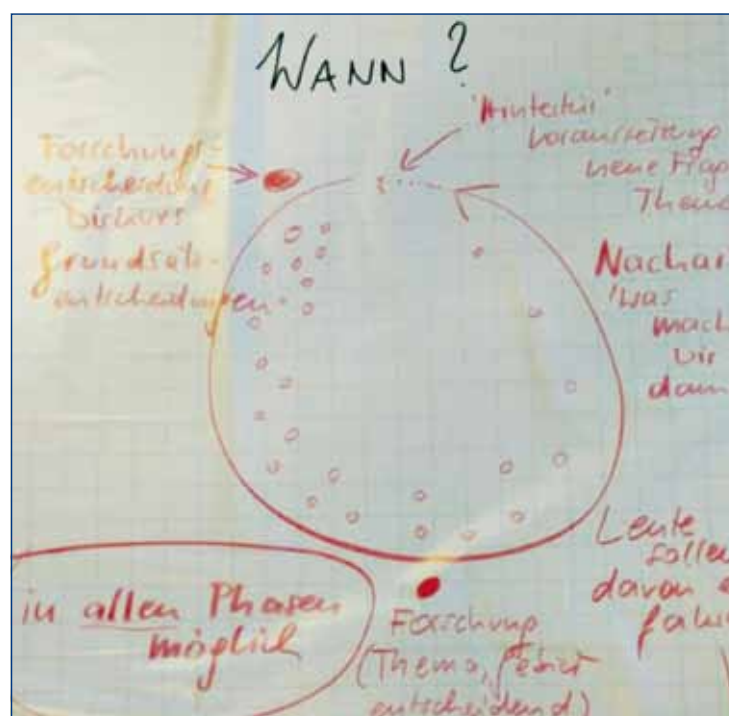 WANN ?
Forschungs-
entscheidung
Diskurs
Grundsatz-
entscheidungen
"Hintertür"
Voraussetzung
neue Frag
Them
Nachar
'was
mach
wir
dam
Leute
sollen
davon
fahr
in allen Phasen
möglich
Forschung
(Thema, Gebiet
entscheidend)